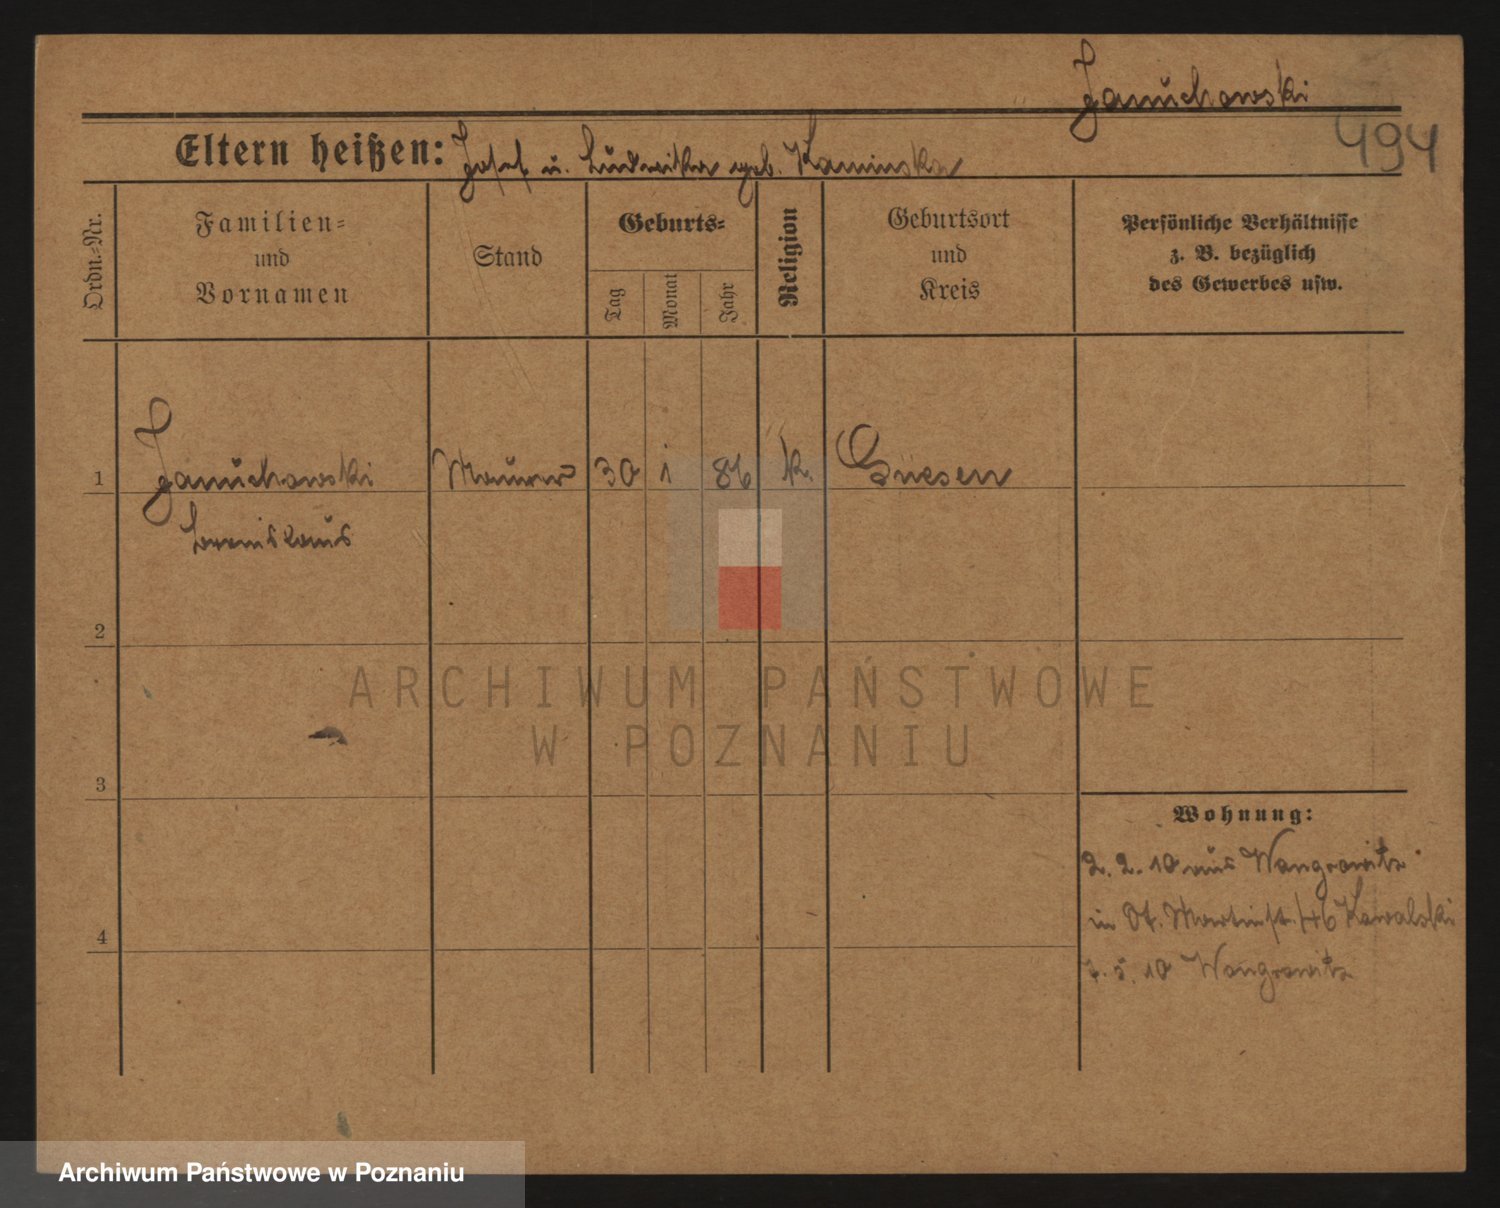 Januchowski
494
Eltern heißen: Josef u. Ludwika geb. Kaminska
Ordn.-Nr.
Familien-
und
Vornamen
Stand
Geburts-
Tag
Monat
Jahr
Religion
Geburtsort
und
Kreis
Persönliche Verhältnisse
z. B. bezüglich
des Gewerbes usw.
1 Januchowski Maurer 30 1 86 k. Gnesen
2
ARCHIWUM PAŃSTWOWE
W POZNANIU
3
Wohnung:
2. 2. 10 aus Wongrowitz
in St. Martinstr. 46 Kowalski
4
7. 5. 10 Wongrowitz
Archiwum Państwowe w Poznaniu